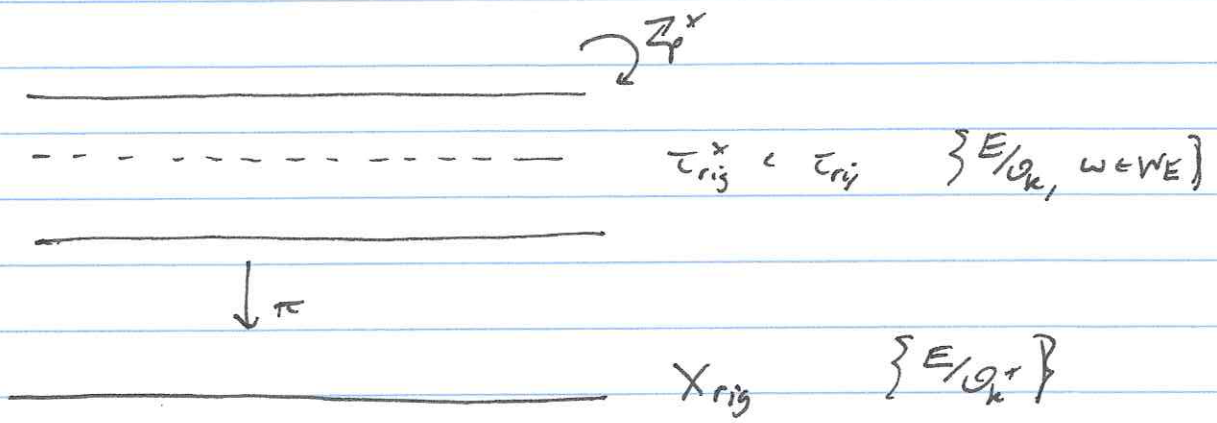 ℤ_p^×
τ_rig^× ⊂ τ_rig { E/𝒪_K, ω ∈ W_E }
π
X_rig { E/𝒪_K + }